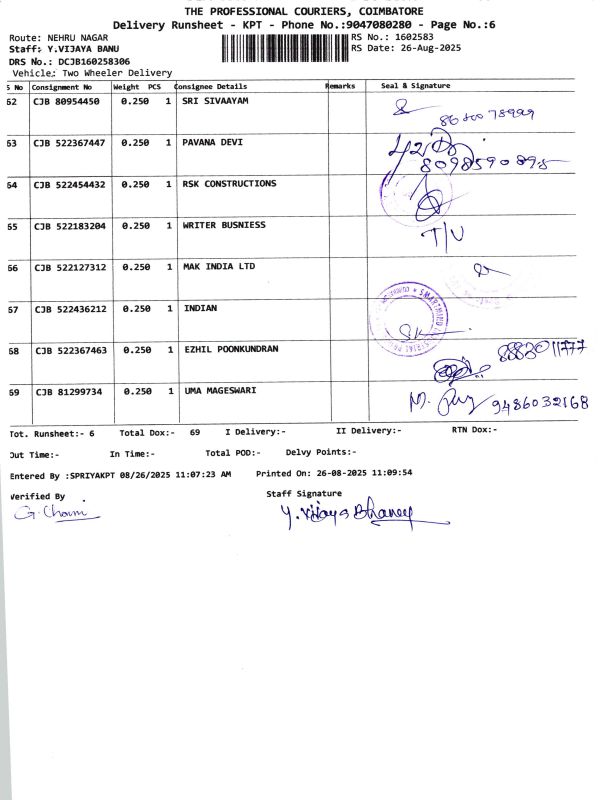 THE PROFESSIONAL COURIERS, COIMBATORE
Delivery Runsheet - KPT - Phone No.:9047080280 - Page No.:6
Route: NEHRU NAGAR RS No.: 1602583
Staff: Y.VIJAYA BANU RS Date: 26-Aug-2025
DRS No.: DCJB160258306
Vehicle: Two Wheeler Delivery
S No Consignment No Weight PCS Consignee Details Remarks Seal & Signature
62 CJB 80954450 0.250 1 SRI SIVAAYAM
63 CJB 522367447 0.250 1 PAVANA DEVI
64 CJB 522454432 0.250 1 RSK CONSTRUCTIONS
65 CJB 522183204 0.250 1 WRITER BUSNIESS T/U
66 CJB 522127312 0.250 1 MAK INDIA LTD
67 CJB 522436212 0.250 1 INDIAN
68 CJB 522367463 0.250 1 EZHIL POONKUNDRAN
69 CJB 81299734 0.250 1 UMA MAGESWARI 9486032168
Tot. Runsheet:- 6 Total Dox:- 69 I Delivery:- II Delivery:- RTN Dox:-
Out Time:- In Time:- Total POD:- Delvy Points:-
Entered By :SPRIYAKPT 08/26/2025 11:07:23 AM Printed On: 26-08-2025 11:09:54
Verified By Staff Signature
Y. Vijaya Bhaney